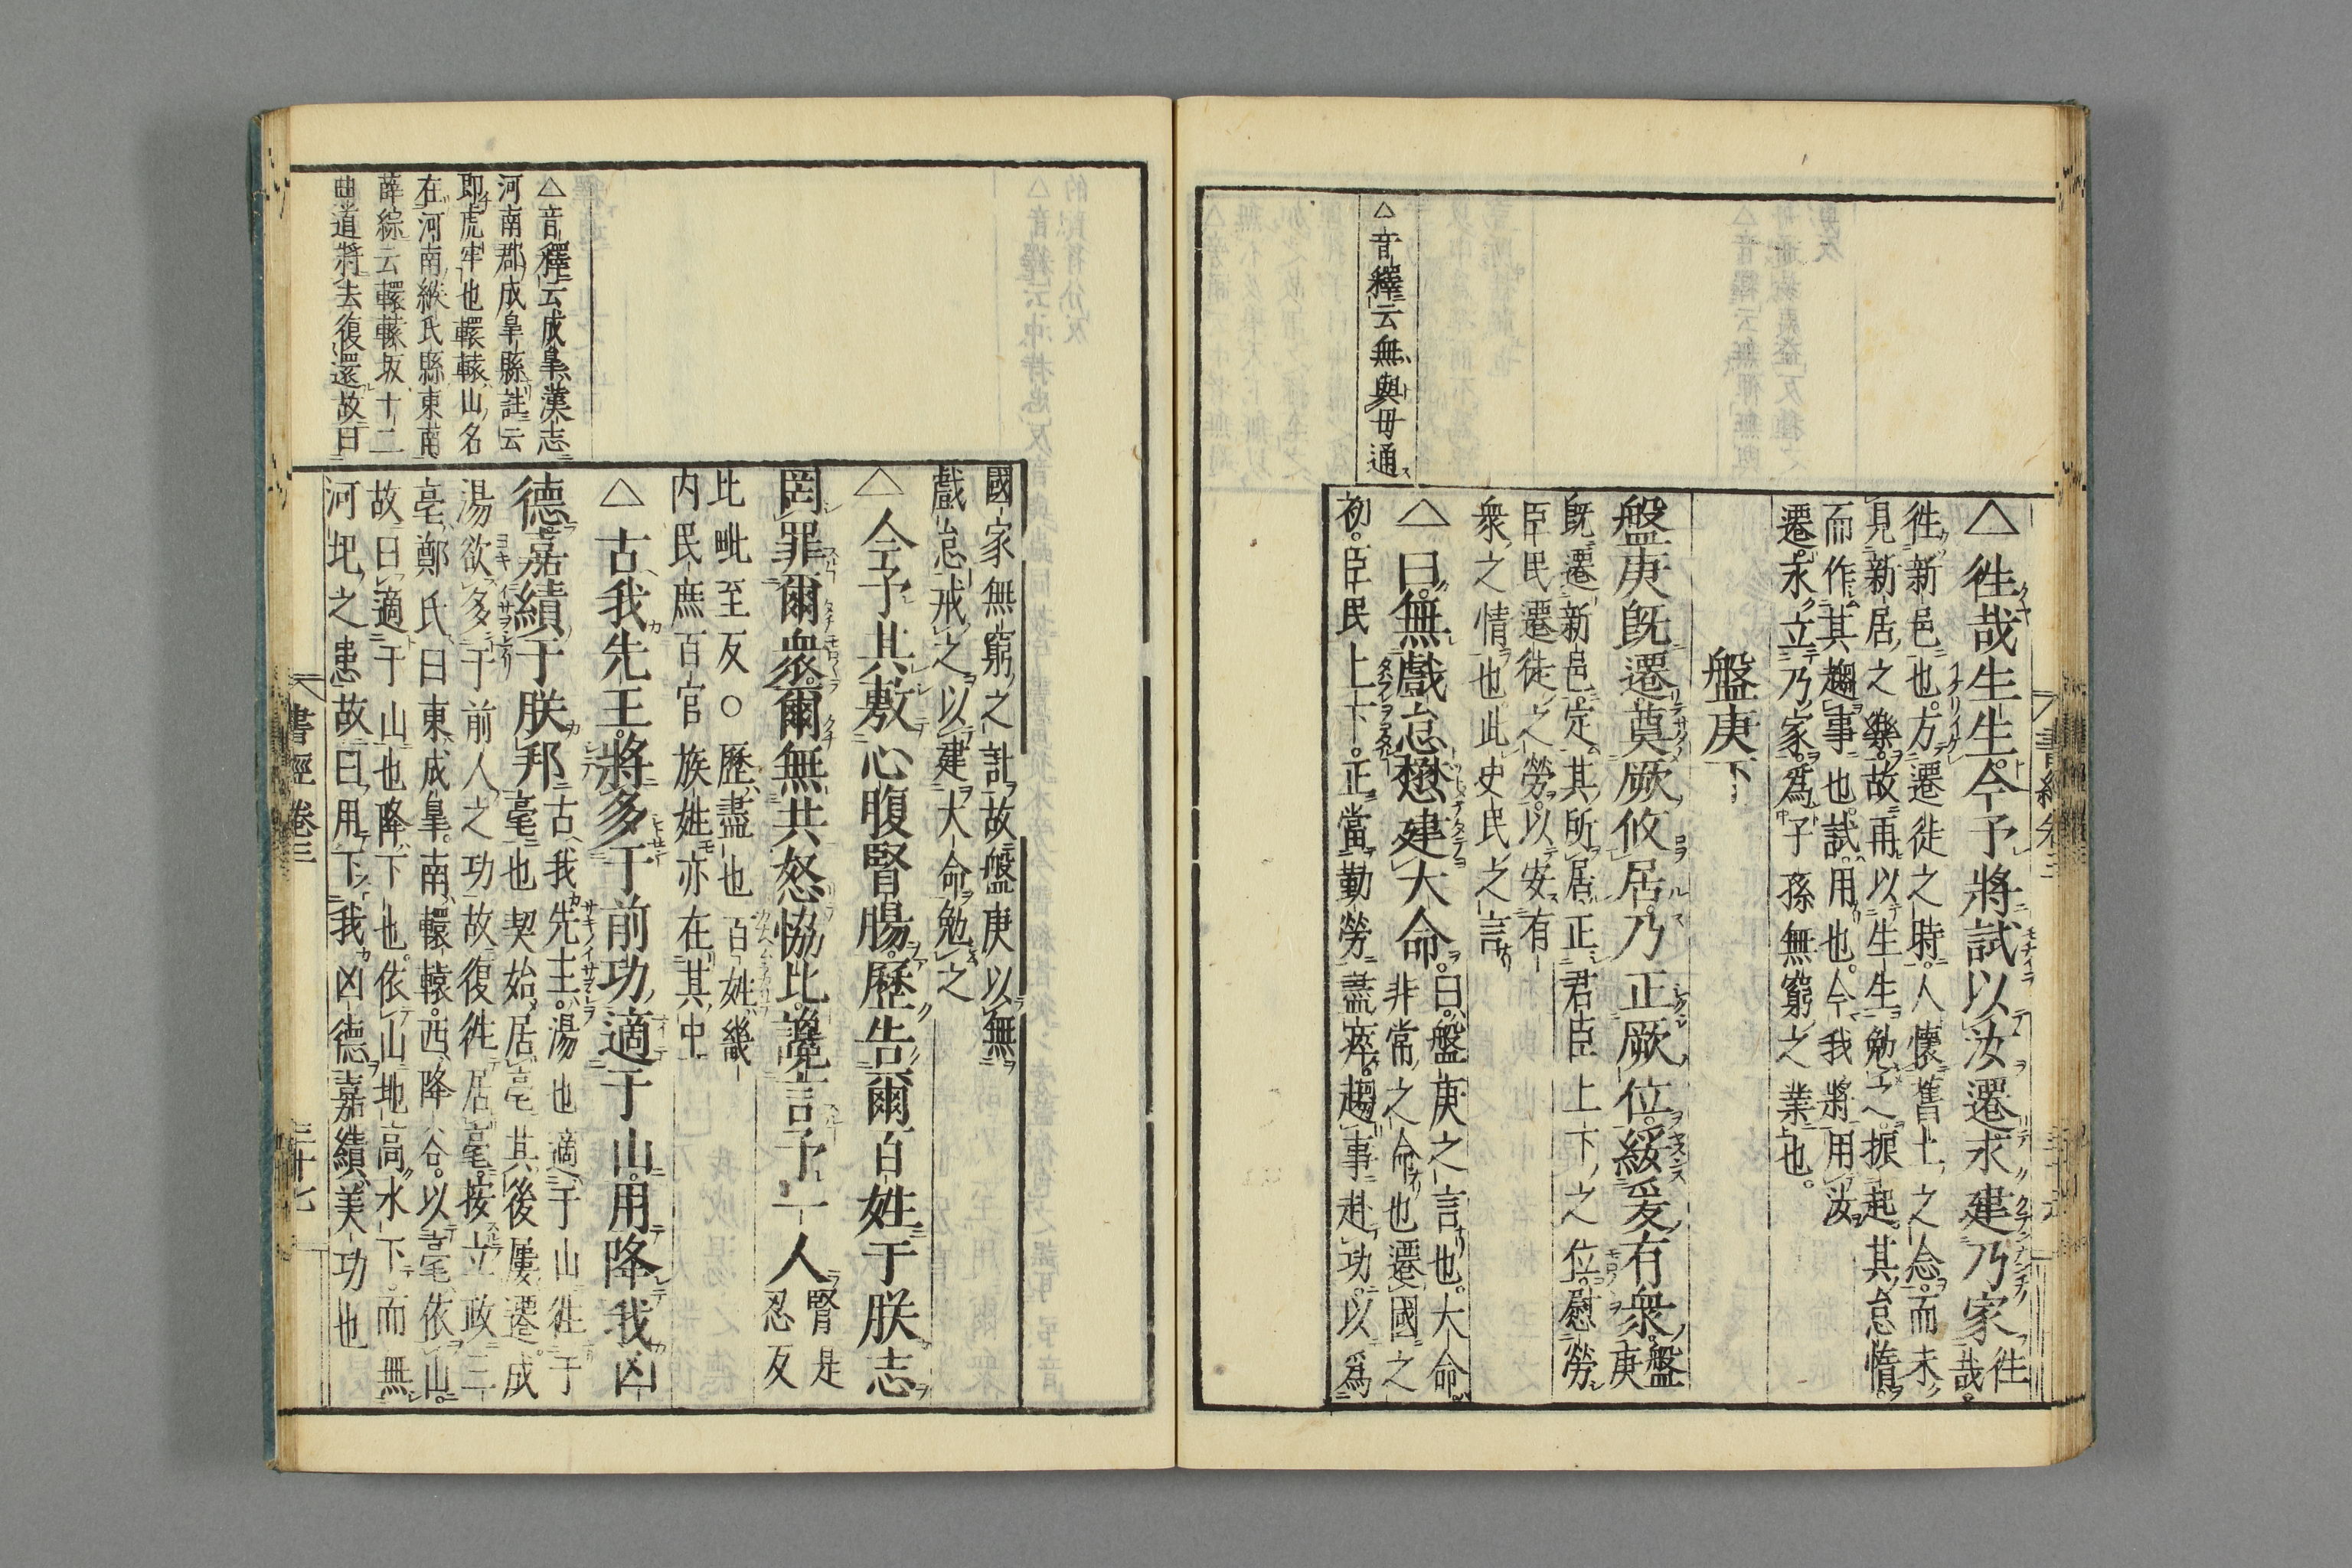 △音釋云無與毋通
△徃哉生生今予將試以汝遷永建乃家徃哉
徃新邑也方遷徙之時人懷舊土之念而未
見新居之樂故再以生生勉之振起其怠惰
而作其趨事也試用也今我將用汝
遷永立乃家爲子孫無窮之業也
盤庚下
盤庚旣遷奠厥攸居乃正厥位綏爰有衆盤庚
旣遷新邑定其所居正君臣上下之位慰勞
臣民遷徙之勞以安有
衆之情也此史民之言
△曰無戲怠懋建大命曰盤庚之言也大命
非常之命也遷國之
初臣民上下正當勤勞盡瘁趨事赴功以爲
△音釋云成皐漢志
河南郡成皐縣註云
即虎牢也轘轅山名
在河南緱氏縣東南
薛綜云轘轅坂十二
曲道將去復還故曰
國家無窮之計故盤庚以無
戲怠戒之以建大命勉之
△今予其敷心腹腎腸歷告爾百姓于朕志
罔罪爾衆爾無共怒協比讒言予一人腎是忍反
比毗至反○歷盡也百姓畿
内民庶百官族姓亦在其中
△古我先王將多于前功適于山用降我凶
德嘉績于朕邦古我先王湯也適于山徃于
亳也契始居亳其後屢遷成
湯欲多于前人之功故復徃居亳按立政三
亳鄭氏曰東成皐南轘轅西降谷以亳依山
故曰適于山也降下也依山地高水下而無
河圯之患故曰用下我凶德嘉績美功也
書經卷三
三十七